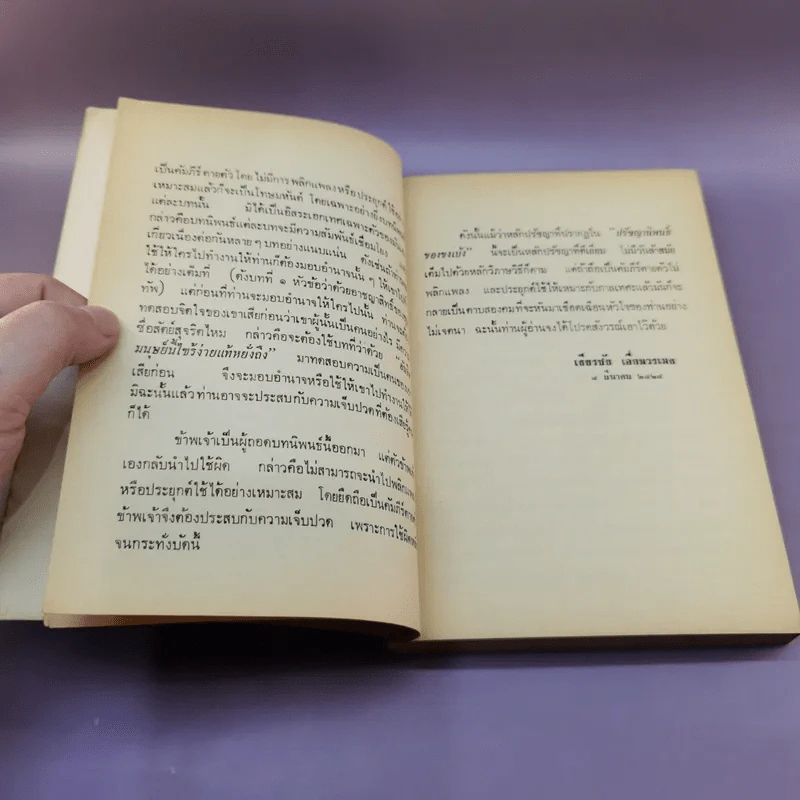 เป็นคัมภีร์ตายตัว โดย ไม่มีการ พลิกแพลง หรือ ประยุกต์ ให้
เหมาะสมแล้วก็จะเป็นโทษมหันต์ โดยเฉพาะอย่างยิ่งบท
แต่ละบทนั้น มิได้เป็นอิสระเอกเทศเฉพาะตัวของมัน
กล่าวคือบทนิพนธ์แต่ละบทจะมีความสัมพันธ์เชื่อมโยง
เกี่ยวเนื่องต่อกันหลาย ๆ บทอย่างแนบแน่น ดังเช่นถ้าท่าน
ใช้ให้ใครไปทำงานให้ท่านก็ต้องมอบอำนาจนั้น ๆ ให้เขาไป
ได้อย่างเต็มที่ (ดังบทที่ ๑ หัวข้อว่าด้วยอาชญาสิทธิ์ของ
ทัพ) แต่ก่อนที่ท่านจะมอบอำนาจให้ใครไปนั้น ท่านจะ
ทดสอบจิตใจของเขาเสียก่อนว่าเขาผู้นั้นเป็นคนอย่างไร มีความ
ซื่อสัตย์สุจริตไหม กล่าวคือจะต้องใช้บทที่ว่าด้วย
มนุษย์นี้ไซร้ง่ายแท้หยั่งถึง” มาทดสอบความเป็นคนของ
เสียก่อน จึงจะมอบอำนาจหรือใช้ให้เขาไปทำงานให้
มิฉะนั้นแล้วท่านอาจจะประสบกับความเจ็บปวดที่ต้องเสีย
ก็ได้
ข้าพเจ้าเป็นผู้ถอดบทนิพนธ์นี้ออกมา แต่ตัวข้าพเจ้า
เองกลับนำไปใช้ผิด กล่าวคือไม่สามารถจะนำไปพลิกแพลง
หรือประยุกต์ใช้ได้อย่างเหมาะสม โดยยึดถือเป็นคัมภีร์ตาย
ข้าพเจ้าจึงต้องประสบกับความเจ็บปวด เพราะการใช้ผิด
จนกระทั่งบัดนี้
ดังนั้นแม้ว่าหลักปรัชญาที่ปรากฏใน “ปรัชญานิพนธ์
ของขงเบ้ง” นี้จะเป็นหลักปรัชญาที่ดีเยี่ยม ไม่มีวันล้าสมัย
เต็มไปด้วยหลักวิภาษวิธีก็ตาม แต่ถ้าถือเป็นคัมภีร์ตายตัวไม่
พลิกแพลง และประยุกต์ใช้ให้เหมาะกับกาลเทศะแล้วมันก็จะ
กลายเป็นดาบสองคมที่จะหันมาเชือดเฉือนหัวใจของท่านอย่าง
ไม่เจตนา ฉะนั้นท่านผู้อ่านจงได้โปรดสังวรณ์เอาไว้ด้วย
เธียรชัย เอี่ยมวรเมธ
๕ มีนาคม ๒๕๒๕